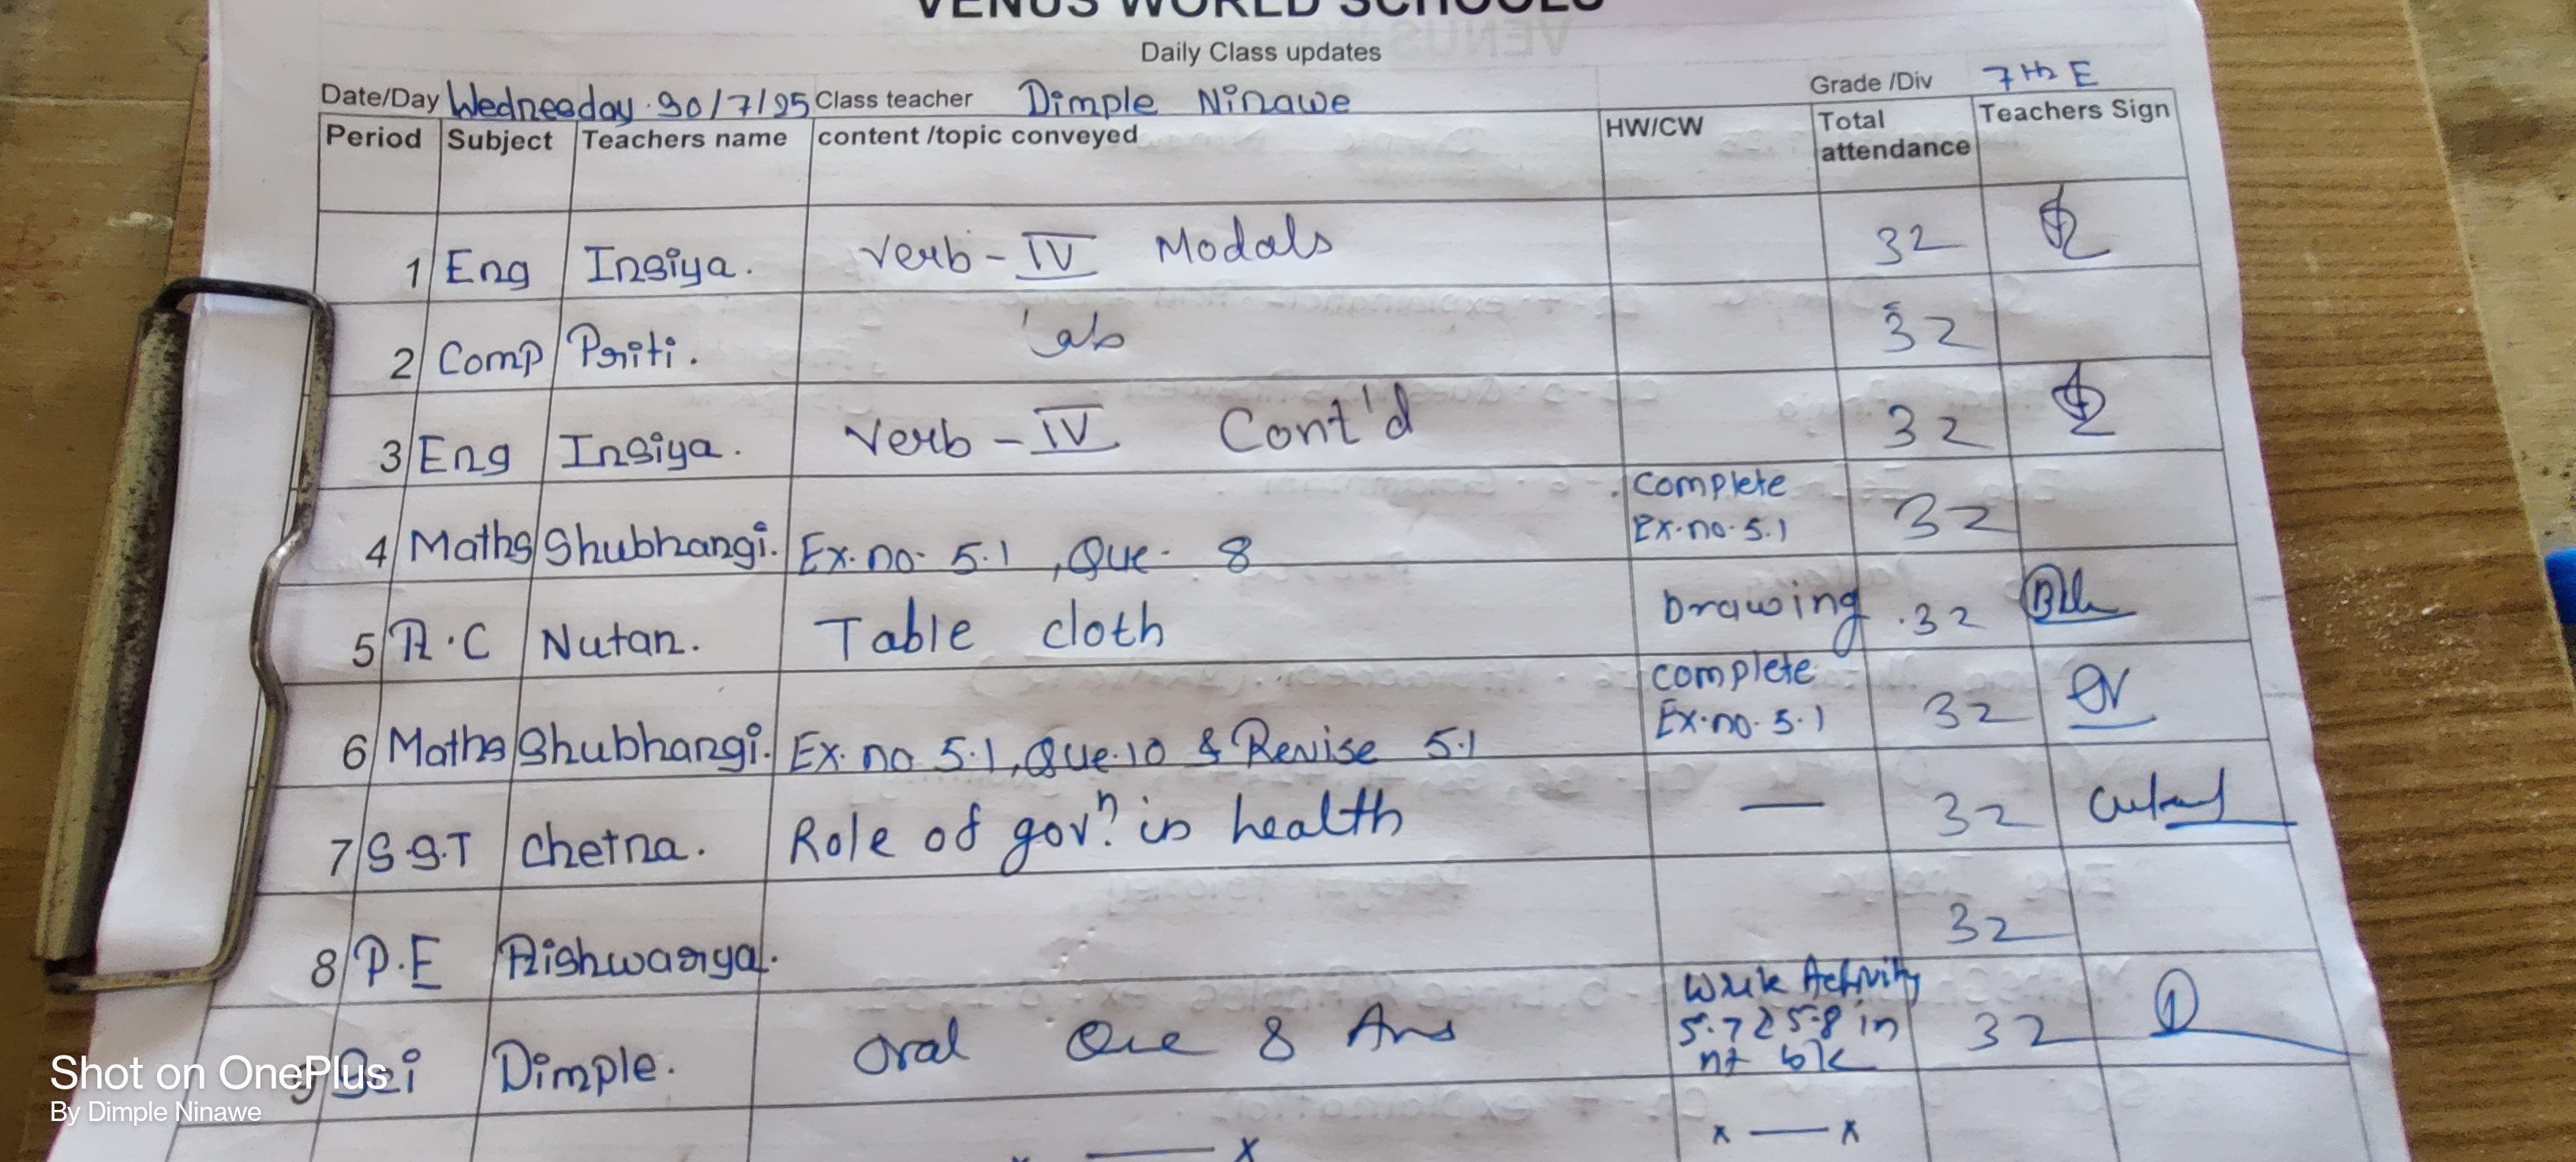 VENUS WORLD SCHOOLS
Daily Class updates
Date/Day Wednesday 30/7/25 Class teacher Dimple Ninawe Grade /Div 7th E
Period Subject Teachers name content /topic conveyed HW/CW Total attendance Teachers Sign
1 Eng Insiya. Verb - IV Modals 32
2 Comp Priti. Lab 32
3 Eng Insiya. Verb - IV Cont'd 32
4 Maths Shubhangi. Ex. no. 5.1, Que. 8 Complete Ex. no. 5.1 32
5 A.C Nutan. Table cloth Drawing 32
6 Maths Shubhangi. Ex. no 5.1, Que. 10 & Revise 5.1 Complete Ex. no. 5.1 32
7 S.S.T Chetna. Role of gov? in health — 32
8 P.E Aishwarya. 32
9 Sci Dimple. Oral Que & Ans Write Activity 5.7 & 5.8 in nt bk 32
x — x x — x
Shot on OnePlus
By Dimple Ninawe